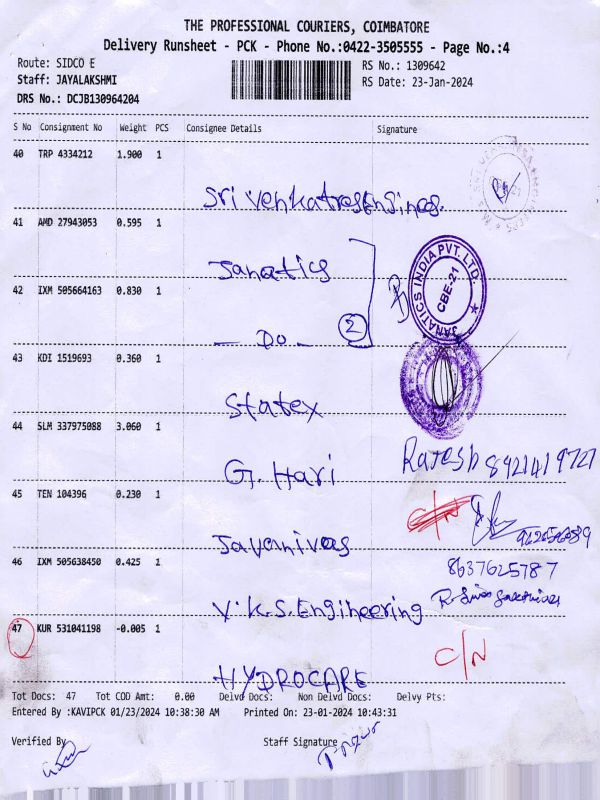 THE PROFESSIONAL COURIERS, COIMBATORE
Delivery Runsheet - PCK - Phone No.:0422-3505555 - Page No.:4
Route: SIDCO E RS No.: 1309642
Staff: JAYALAKSHMI RS Date: 23-Jan-2024
DRS No.: DCJB130964204
S No Consignment No Weight PCS Consignee Details Signature
40 TRP 4334212 1.900 1
Sri Venkatres Engines.
41 AMD 27943053 0.595 1
Janatics
JANATICS INDIA PVT. LTD. CBE-21
42 IXM 505664163 0.830 1
- Do - 2
43 KDI 1519693 0.360 1
Statex
44 SLM 337975088 3.060 1
G. Hari Rajesh 8921419721
45 TEN 104396 0.230 1 C/N
Jayanivas
46 IXM 505638450 0.425 1 8637625787
V.K.S. Engineering
47 KUR 531041198 -0.005 1 C/N
HYDROCARE
Tot Docs: 47 Tot COD Amt: 0.00 Delvd Docs: Non Delvd Docs: Delvy Pts:
Entered By :KAVIPCK 01/23/2024 10:38:30 AM Printed On: 23-01-2024 10:43:31
Verified By Staff Signature